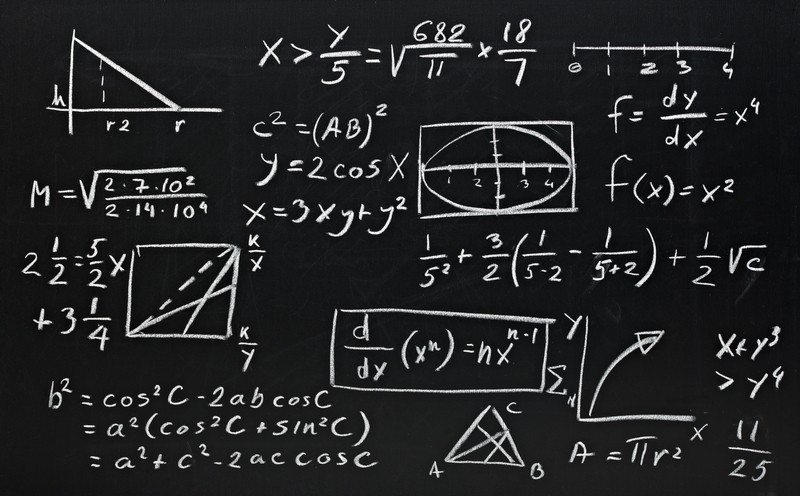 X > y/5 = √(682/π) × 18/7
0 1 2 3 4
h
r2 r
c² = (AB)²
y = 2 cos X
x = 3xy + y²
1 2 3 4
f = dy/dx = x⁴
f(x) = x²
M = √(2·7·10²/2·14·10⁴)
2 1/2 = 5/2 x
+ 3 1/4
K/X
K/Y
1/5² + 3/2 (1/5-2 - 1/5+2) + 1/2 √c
d/dx (xⁿ) = nxⁿ⁻¹
Y
Σ
X
x + y³
> y⁴
11/25
b² = cos²C - 2ab cosC
= a²(cos²C + sin²C)
= a² + c² - 2ac cosC
C
A B
A = πr²